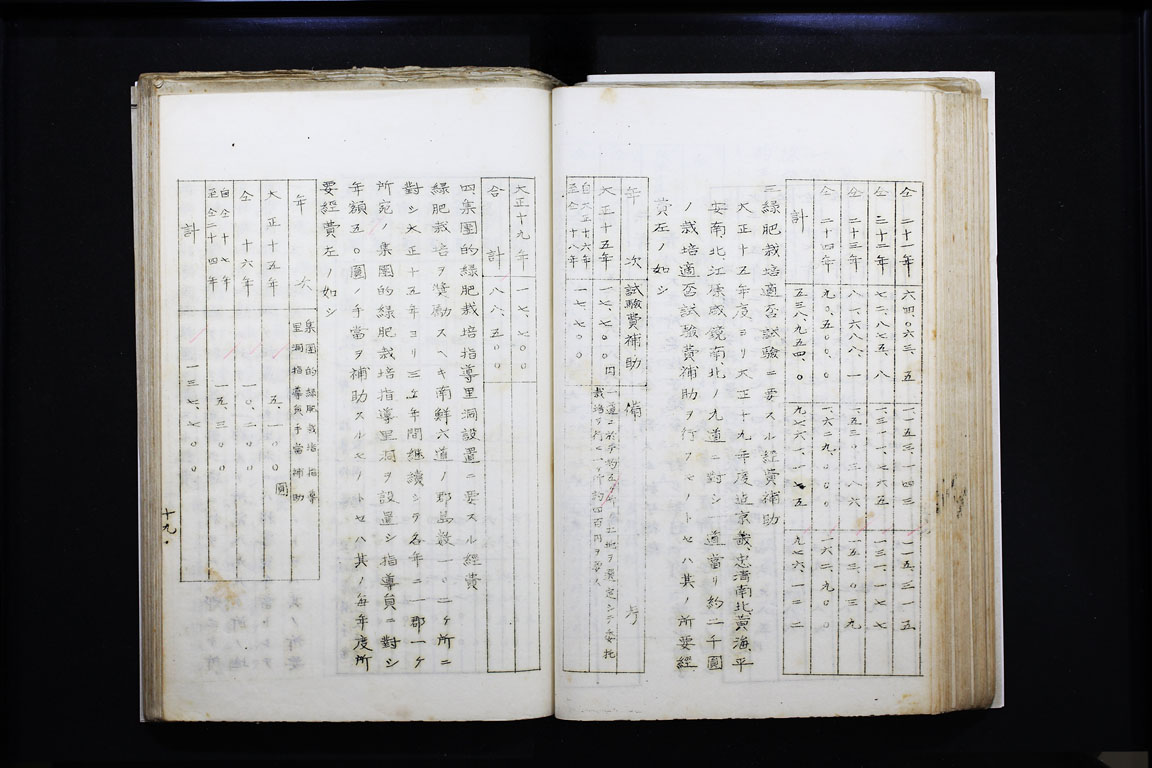 仝 二十一年 六四〇六三、五 一、一五三、一四三 一一五、三一五
仝 二十二年 七二、八七五、八 一、三一一、七六五 一三一、一七七
仝 二十三年 八一、六八八、一 一、五三〇、三八六 一五三、〇三九
仝 二十四年 九〇、五〇〇、〇 一、六二九、〇〇〇 一六二、九〇〇
計 五三八、九五四、〇 九、七六一、一七五 九七六、一二二
三 緑肥栽培適否試驗ニ要スル經費補助
大正十五年度ヨリ大正十九年度迄京畿、忠清南北、黄海、平
安南北、江原、咸鏡南、北ノ九道ニ對シ一道當リ約二千圓
ノ栽培適否試驗費補助ヲ行フモノトセハ其ノ所要經
費左ノ如シ
年次 試驗費補助 備考
大正十五年 一七、七〇〇円 一道ニ於テ約五ケ所ノ土地ヲ選定シテ委托
栽培ヲ行ヒ一ケ所約四百円ヲ要ス
自大正十六年 至仝十八年 一七、七〇〇
大正十九年 一七、七〇〇
合計 八八、五〇〇
四 集團的緑肥栽培指導里洞設置ニ要スル經費
緑肥栽培ヲ奬勵スヘキ南鮮六道ノ郡島數一〇二ケ所ニ
對シ大正十五年ヨリ三ケ年間繼續シテ各年ニ一郡一ケ
所宛ノ集團的緑肥栽培指導里洞ヲ設置シ指導員ニ對シ
年額五〇圓ノ手當ヲ補助スルモノトセハ其ノ毎年度所
要經費左ノ如シ
年次 集團的緑肥栽培指導
里洞指導員手當補助
大正十五年 五、一〇〇圓
仝十六年 一〇、二〇〇
自仝十七年 至仝二十四年 一五、三〇〇
計 一三七、七〇〇
十九、